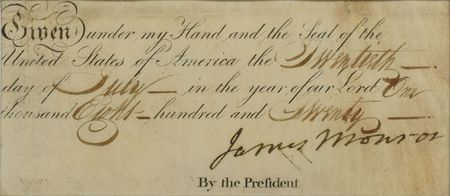 Given under my Hand and the Seal of the
United States of America the Twentieth —
day of July — in the year of our Lord One
thousand Eight — hundred and Twenty —
James Monroe
By the President